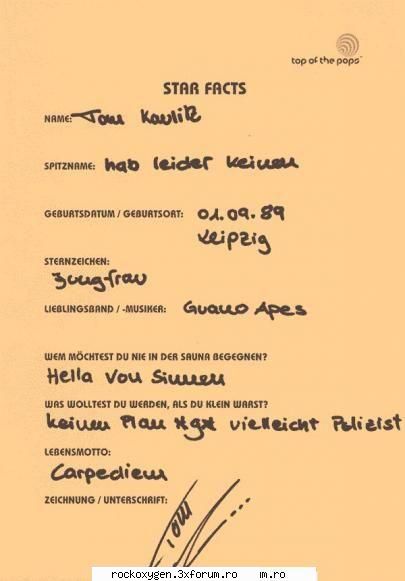 top of the pops
STAR FACTS
NAME: Tom Kaulitz
SPITZNAME: hab leider keinen
GEBURTSDATUM / GEBURTSORT: 01.09.89
Leipzig
STERNZEICHEN:
Jungfrau
LIEBLINGSBAND / -MUSIKER: Guano Apes
WEM MÖCHTEST DU NIE IN DER SAUNA BEGEGNEN?
Hella Von Sinnen
WAS WOLLTEST DU WERDEN, ALS DU KLEIN WARST?
keinen Plan vielleicht Polizist
LEBENSMOTTO:
Carpediem
ZEICHNUNG / UNTERSCHRIFT:
Tom
rockoxygen.3xforum.ro m.ro